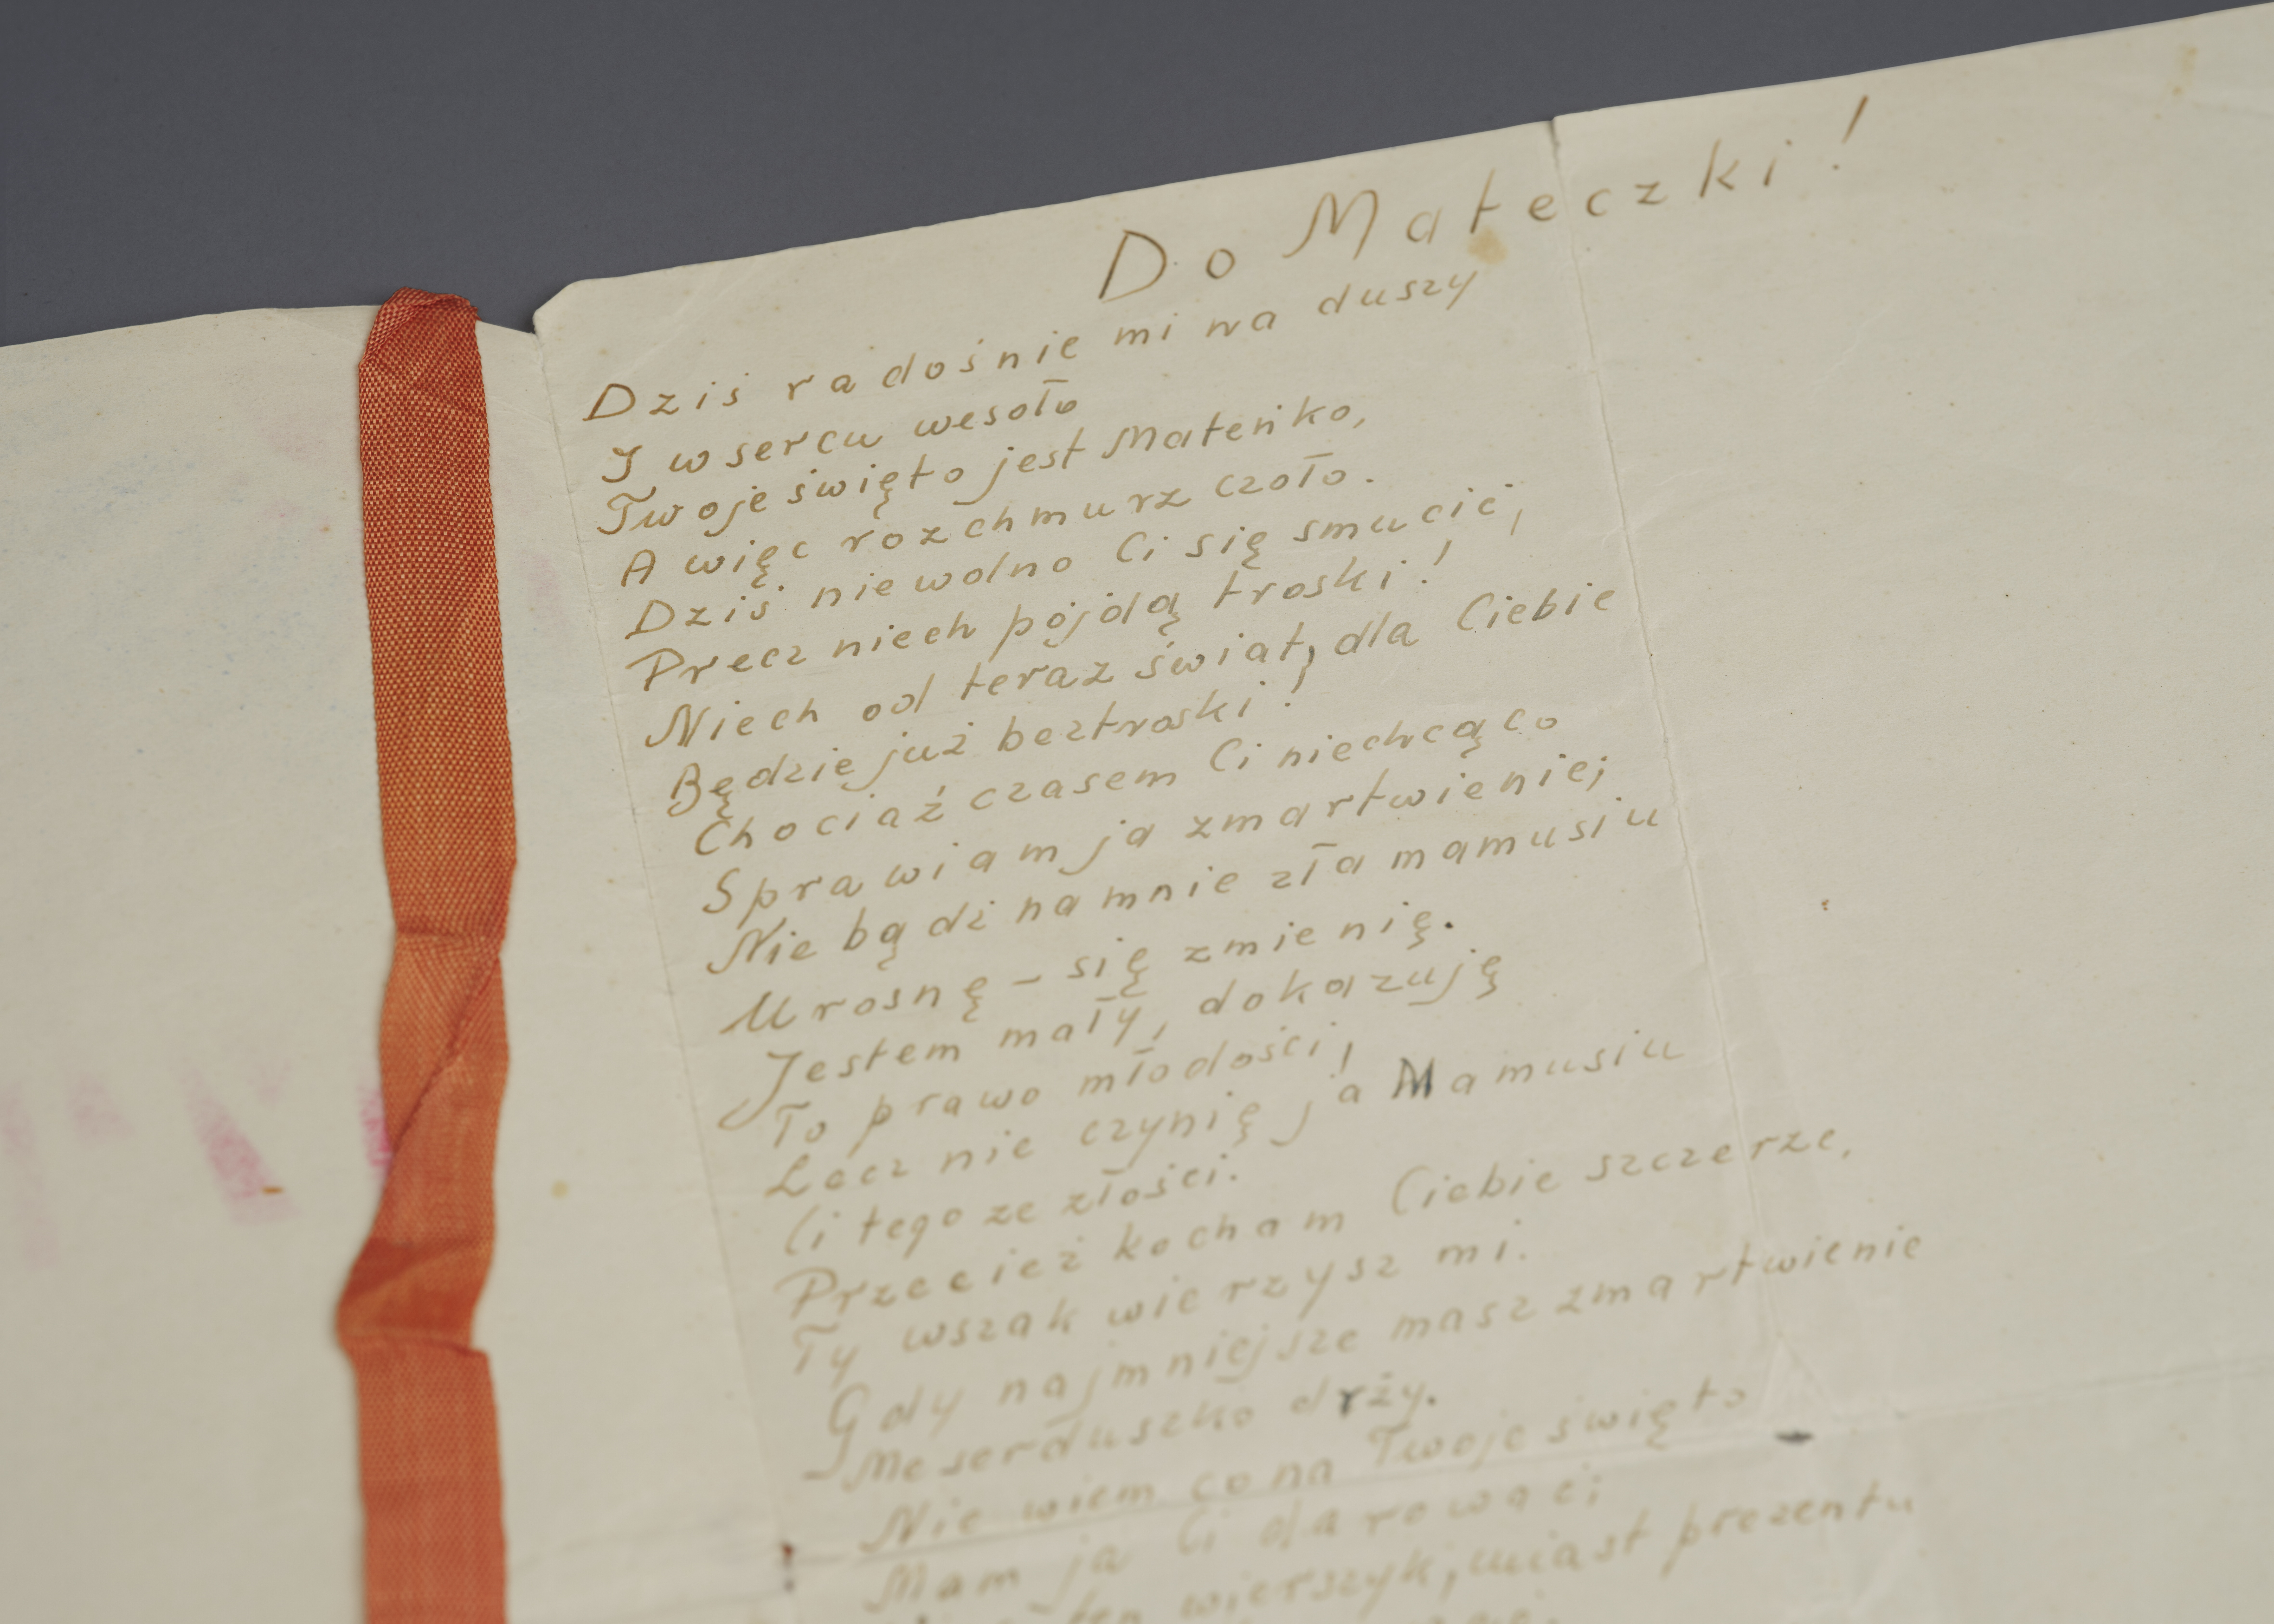 Do Mateczki!
Dziś radośnie mi na duszy
I w sercu wesoło
Twoje święto jest Mateńko,
A więc rozchmurz czoło.
Dziś nie wolno Ci się smucić,
Precz niech pójdą troski!
Niech od teraz świat, dla Ciebie
Będzie już beztroski!
Chociaź czasem Ci niechcąco
Sprawiam ja zmartwienie;
Nie bądź na mnie zła mamusiu
Urosnę – się zmienię.
Jestem mały, dokazuję
To prawo młodości!
Lecz nie czynię ja Mamusiu
Ci tego ze złości.
Przecież kocham Ciebie szczerze,
Ty wszak wierzysz mi.
Gdy najmniejsze masz zmartwienie
Me serduszko drży.
Nie wiem co na Twoje święto
Mam ja Ci darować;
ten wierszyk, miast prezentu